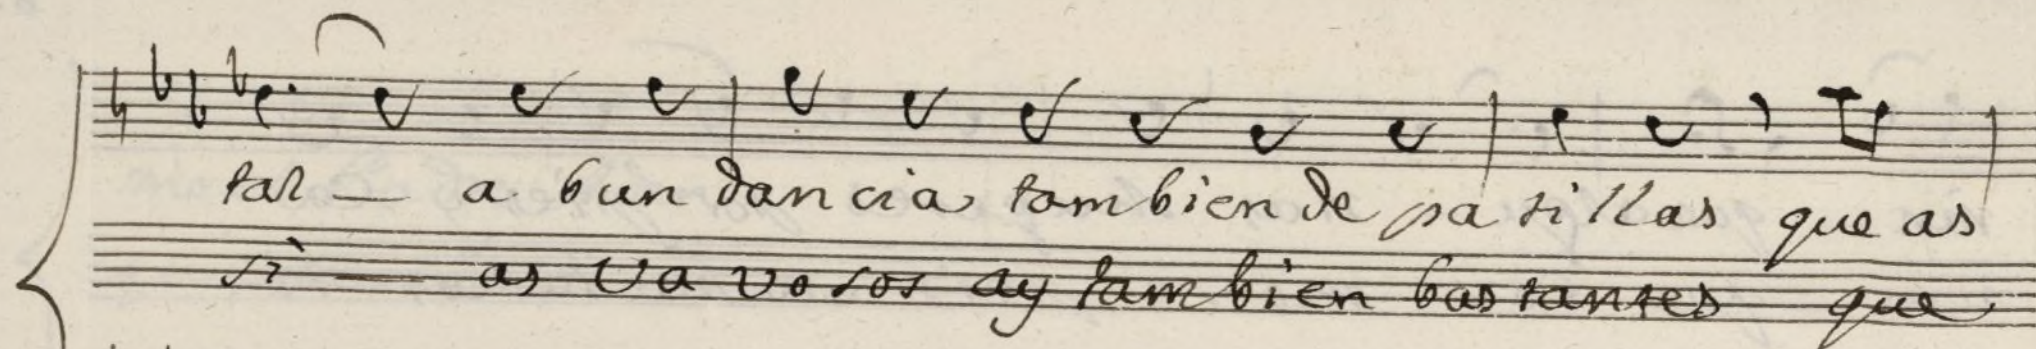 tal — a bun dancia tambien de pa tillas que as
si — as va vosos ay tambien bastantes que